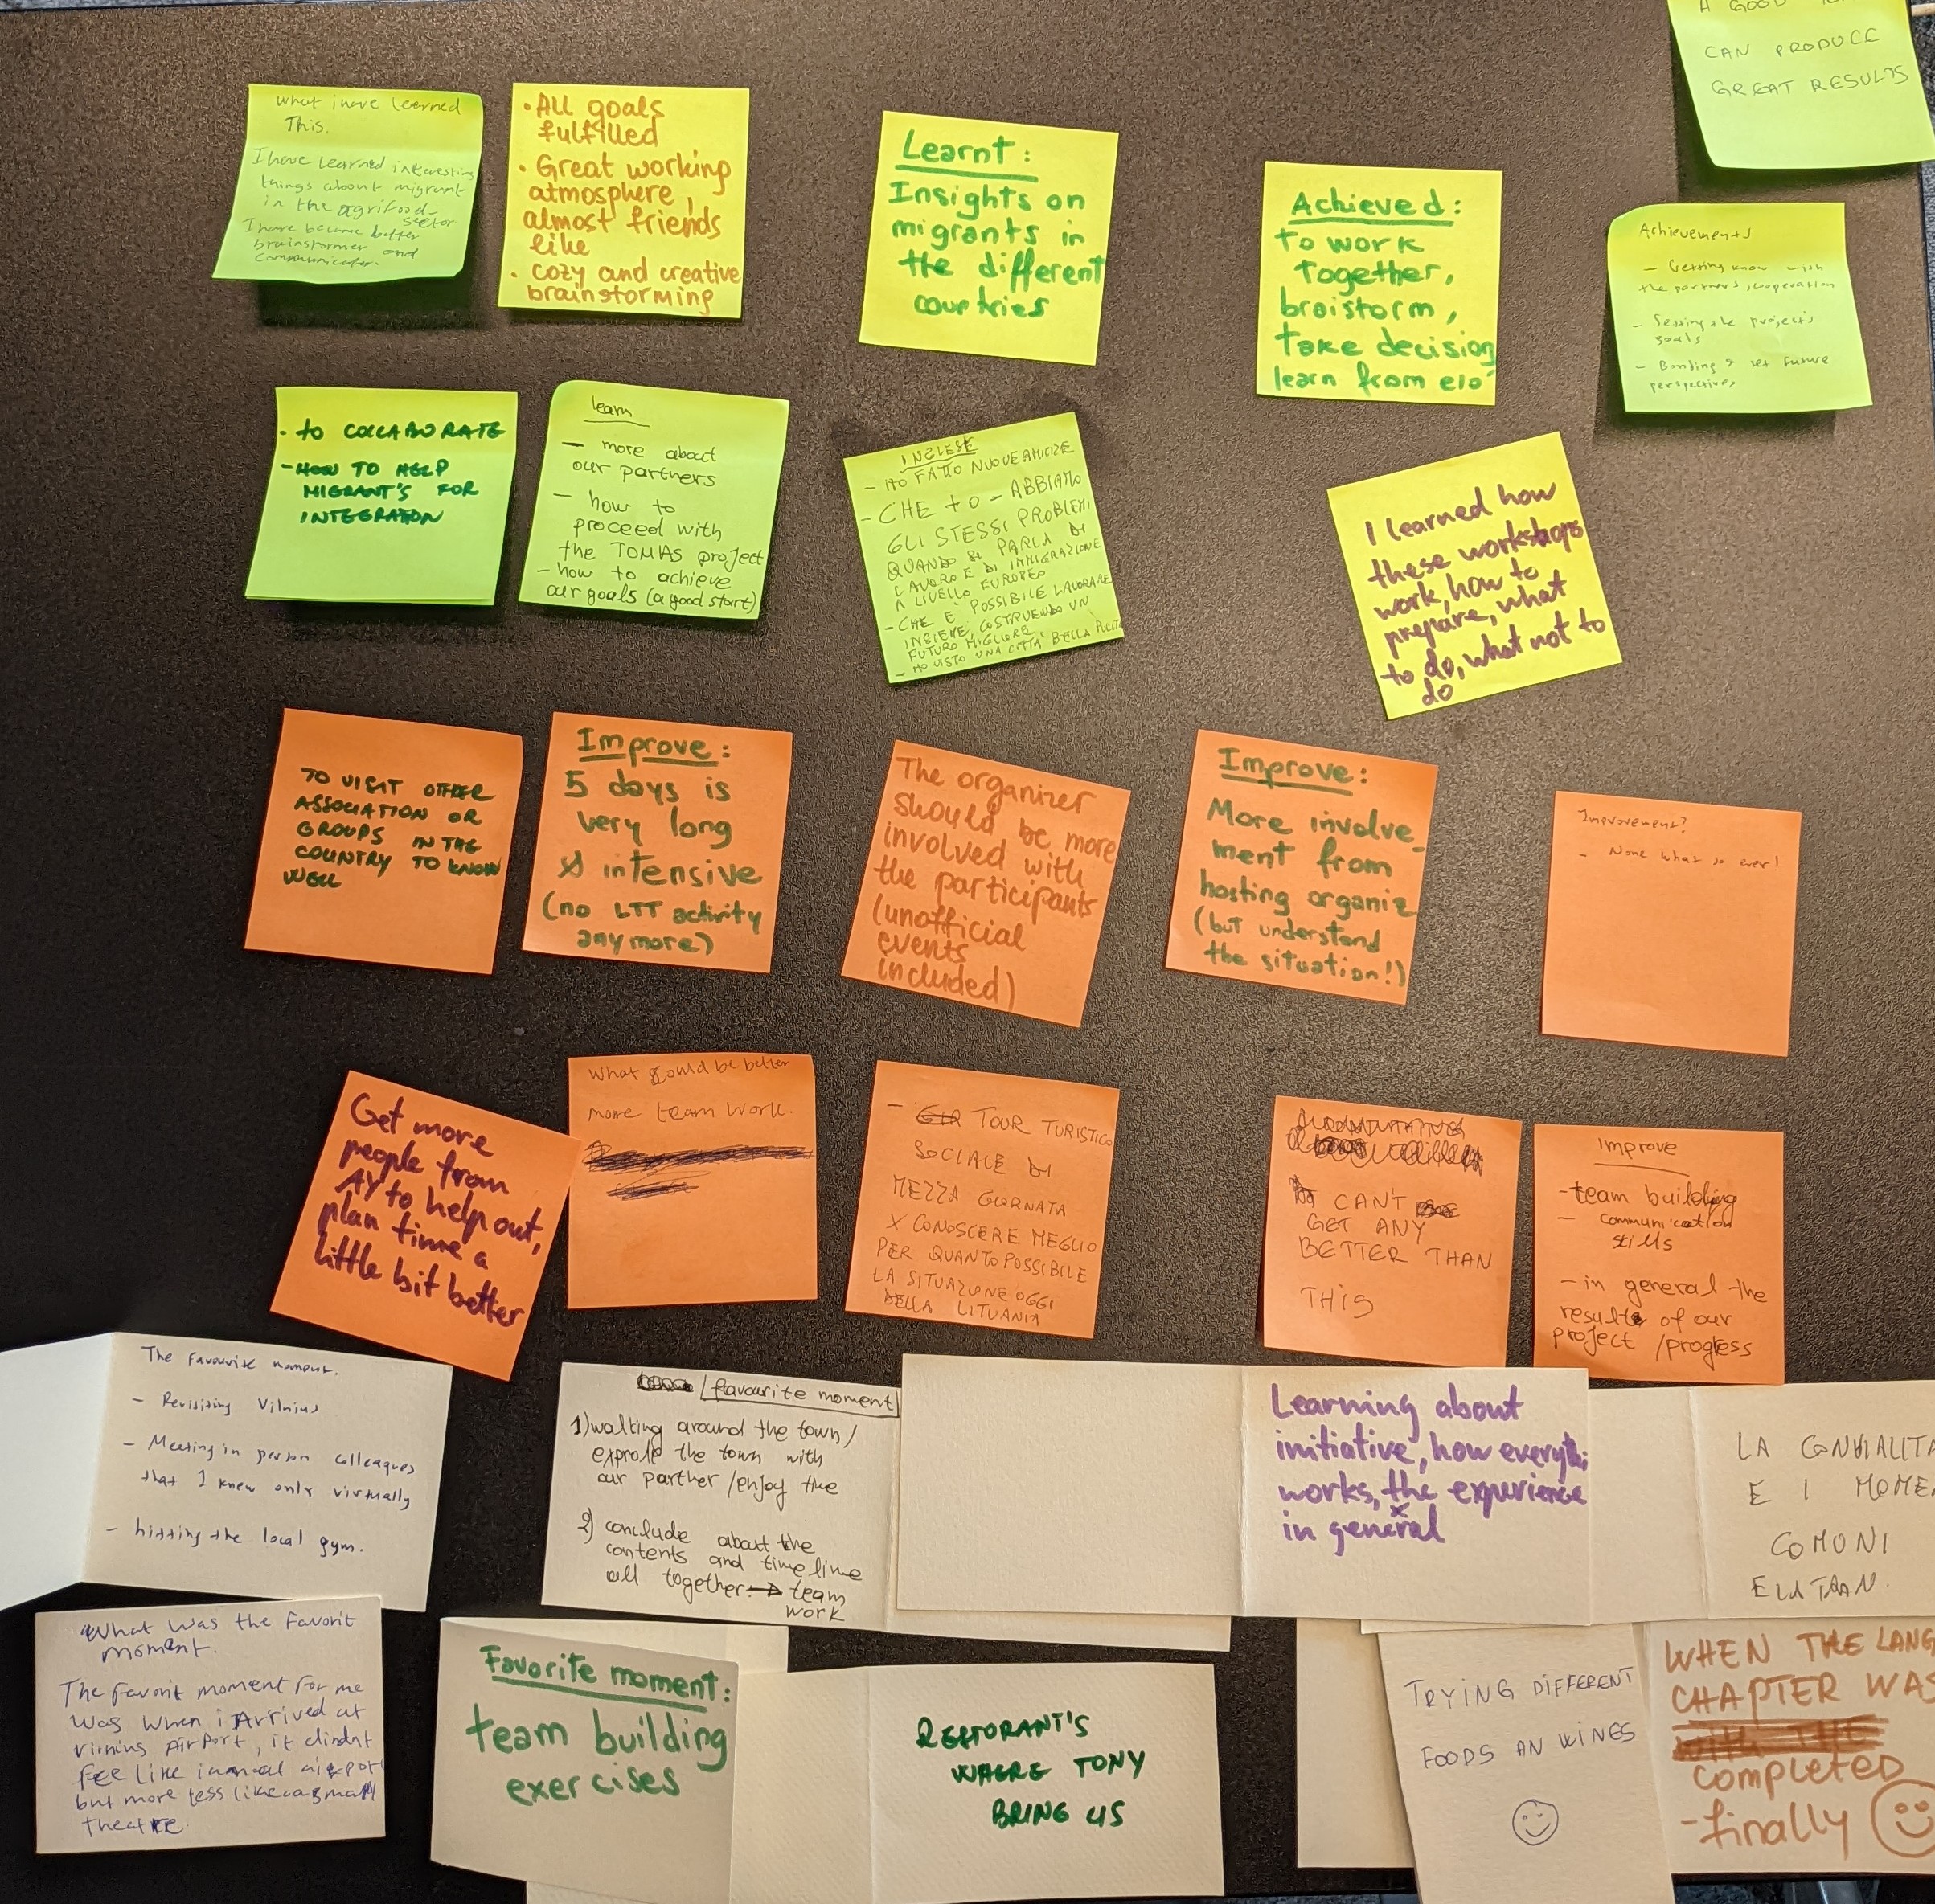 CAN PRODUCE
GREAT RESULTS
What i have learned
This.
I have learned interesting
things about migrant
in the agrifood-
sector
I have become better
brainstormer and
communicator.
• All goals
fulfilled
• Great working
atmosphere,
almost friends
like
• cozy and creative
brainstorming
Learnt:
Insights on
migrants in
the different
countries
Achieved:
to work
together,
braistorm,
take decision
learn from e/o
Achievements
- Getting know with
the partners, cooperation
- Setting the project's
goals
- Bonding & set future
perspectives
• to COLLABORATE
- HOW TO HELP
MIGRANT'S FOR
INTEGRATION
learn
- more about
our partners
- how to
proceed with
the TOMAS project
- how to achieve
our goals (a good start)
INGLESE
- HO FATTO NUOVE AMICIZIE
- CHE + O - ABBIAMO
GLI STESSI PROBLEMI
QUANDO SI PARLA DI
LAVORO E DI IMMIGRAZIONE
A LIVELLO EUROPEO
- CHE E' POSSIBILE LAVORARE
INSIEME, COSTRUENDO UN
FUTURO MIGLIORE
- HO VISTO UNA CITTA' BELLA PULITA
I learned how
these workshops
work, how to
prepare, what
to do, what not to
do
TO VISIT OTHER
ASSOCIATION OR
GROUPS IN THE
COUNTRY TO KNOW
WELL
Improve:
5 days is
very long
& intensive
(no LTT activity
anymore)
The organizer
should be more
involved with
the participants
(unofficial
events
included)
Improve:
More involve-
ment from
hosting organiz.
(but understand
the situation!)
Improvement?
- None what so ever!
Get more
people from
AY to help out,
plan time a
little bit better
What could be better
more team work.
- TOUR TURISTICO
SOCIALE DI
MEZZA GIORNATA
X CONOSCERE MEGLIO
PER QUANTO POSSIBILE
LA SITUAZIONE OGGI
DELLA LITUANIA
CAN'T
GET ANY
BETTER THAN
THIS
Improve
- team building
- communication
skills
- in general the
results of our
project / progress
The favourite moment.
- Revisiting Vilnius
- Meeting in person colleagues
that I knew only virtually
- hitting the local gym.
favourite moment
1) walking around the town /
exprole the town with
our parther / enjoy the
2) conclude about the
contents and timeline
all together → team
work
Learning about
initiative, how everythi
works, the experience
in general
LA CONVIALITA
E I MOME
COMUNI
What was the favorit
moment.
The favorit moment for me
was when i Arrived at
Virnius Airport, it didnt
fee like
but more less like a small
theatre.
Favorite moment:
team building
exercises
RESTORANT'S
WHERE TONY
BRING US
TRYING DIFFERENT
FOODS AN WINES
WHEN THE LANG
CHAPTER WAS
completed
- finally